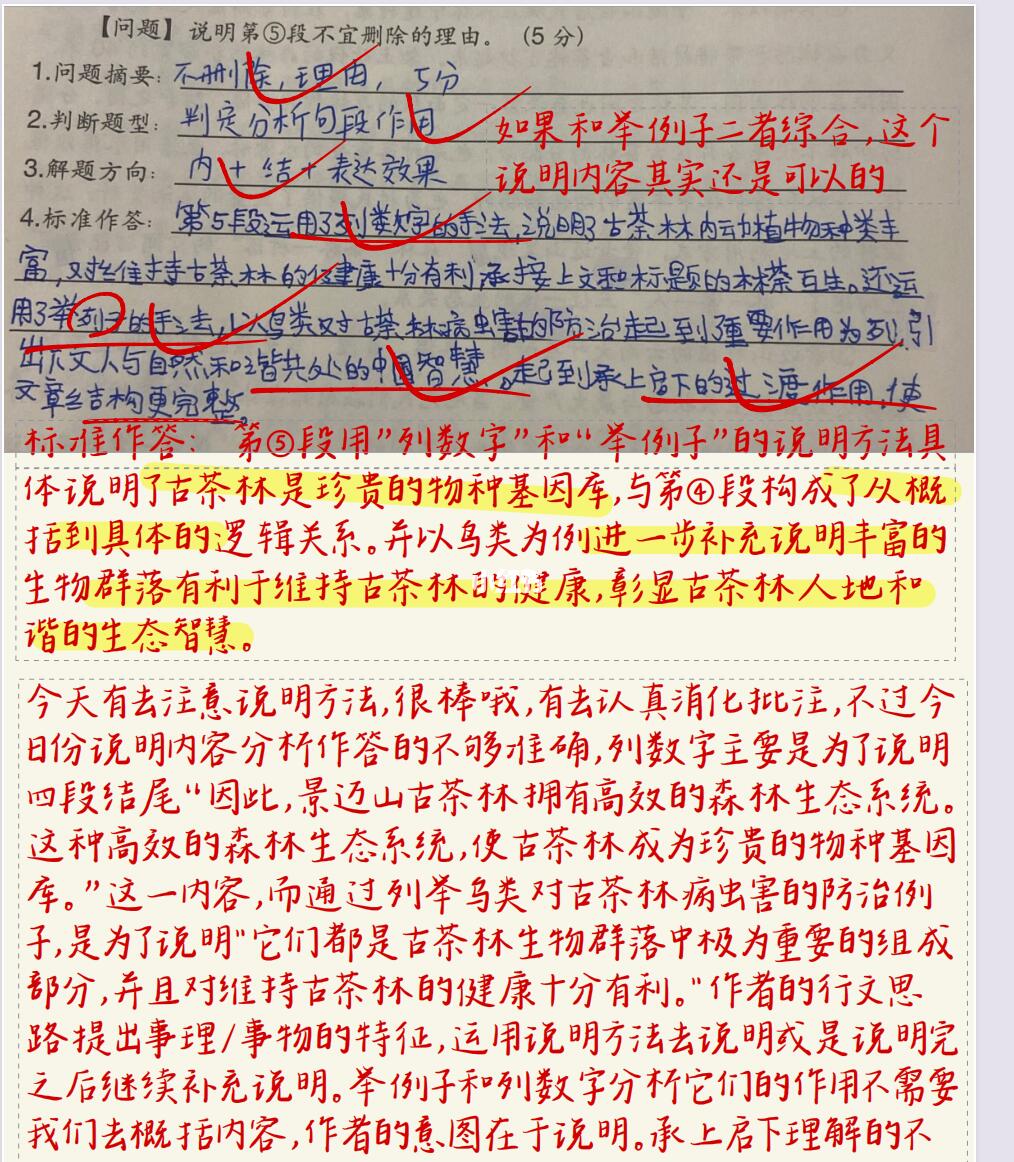 【问题】说明第⑤段不宜删除的理由。（5分）
1.问题摘要：不删除，理由，5分
2.判断题型：判定分析句段作用
如果和举例子二者综合，这个
说明内容其实还是可以的
3.解题方向：内+结+表达效果
4.标准作答：第5段运用了列数字的手法，说明了古茶林内动植物种类丰
富，对维持古茶林的健康十分有利，承接上文和标题的林茶互生。还运
用了举例子的手法，以鸟类对古茶林病虫害的防治起到重要作用为列，引
出下文人与自然和谐共处的中国智慧。起到承上启下的过渡作用，使
文章结构更完整。
标准作答：第⑤段用"列数字"和"举例子"的说明方法具
体说明了古茶林是珍贵的物种基因库，与第④段构成了从概
括到具体的逻辑关系。并以鸟类为例进一步补充说明丰富的
生物群落有利于维持古茶林的健康，彰显古茶林人地和
谐的生态智慧。
小红书
今天有去注意说明方法，很棒哦，有去认真消化批注，不过今
日份说明内容分析作答的不够准确，列数字主要是为了说明
四段结尾"因此，景迈山古茶林拥有高效的森林生态系统。
这种高效的森林生态系统，使古茶林成为珍贵的物种基因
库。"这一内容，而通过列举鸟类对古茶林病虫害的防治例
子，是为了说明"它们都是古茶林生物群落中极为重要的组成
部分，并且对维持古茶林的健康十分有利。"作者的行文思
路提出事理/事物的特征，运用说明方法去说明或是说明完
之后继续补充说明。举例子和列数字分析它们的作用不需要
我们去概括内容，作者的意图在于说明。承上启下理解的不